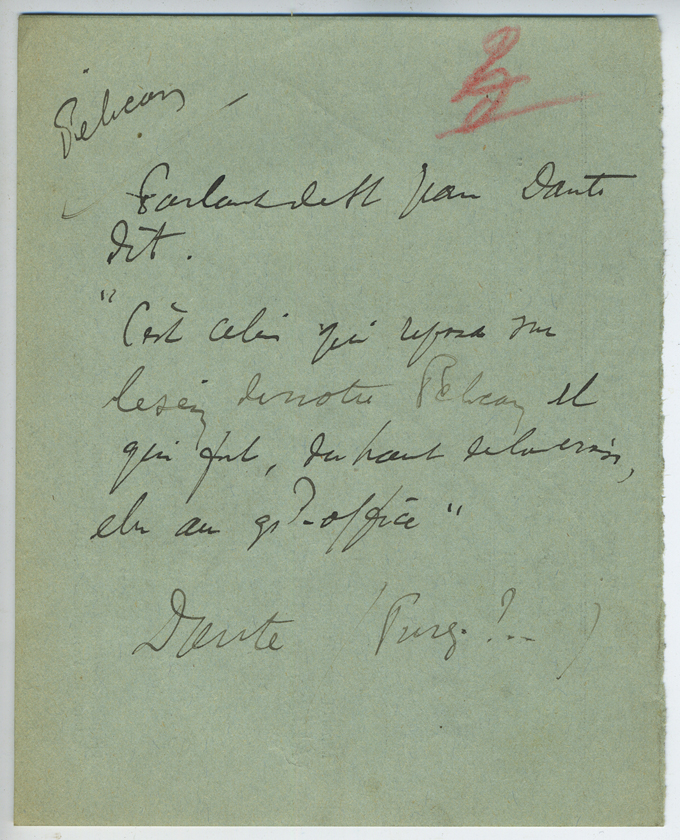 Pélican —
Parlant de St Jean Dante
dit.
"C'est celui qui reposa sur
le sein de notre Pélican et
qui fut, du haut de la croix,
elu au gd office"
Dante (Purg. ?...)